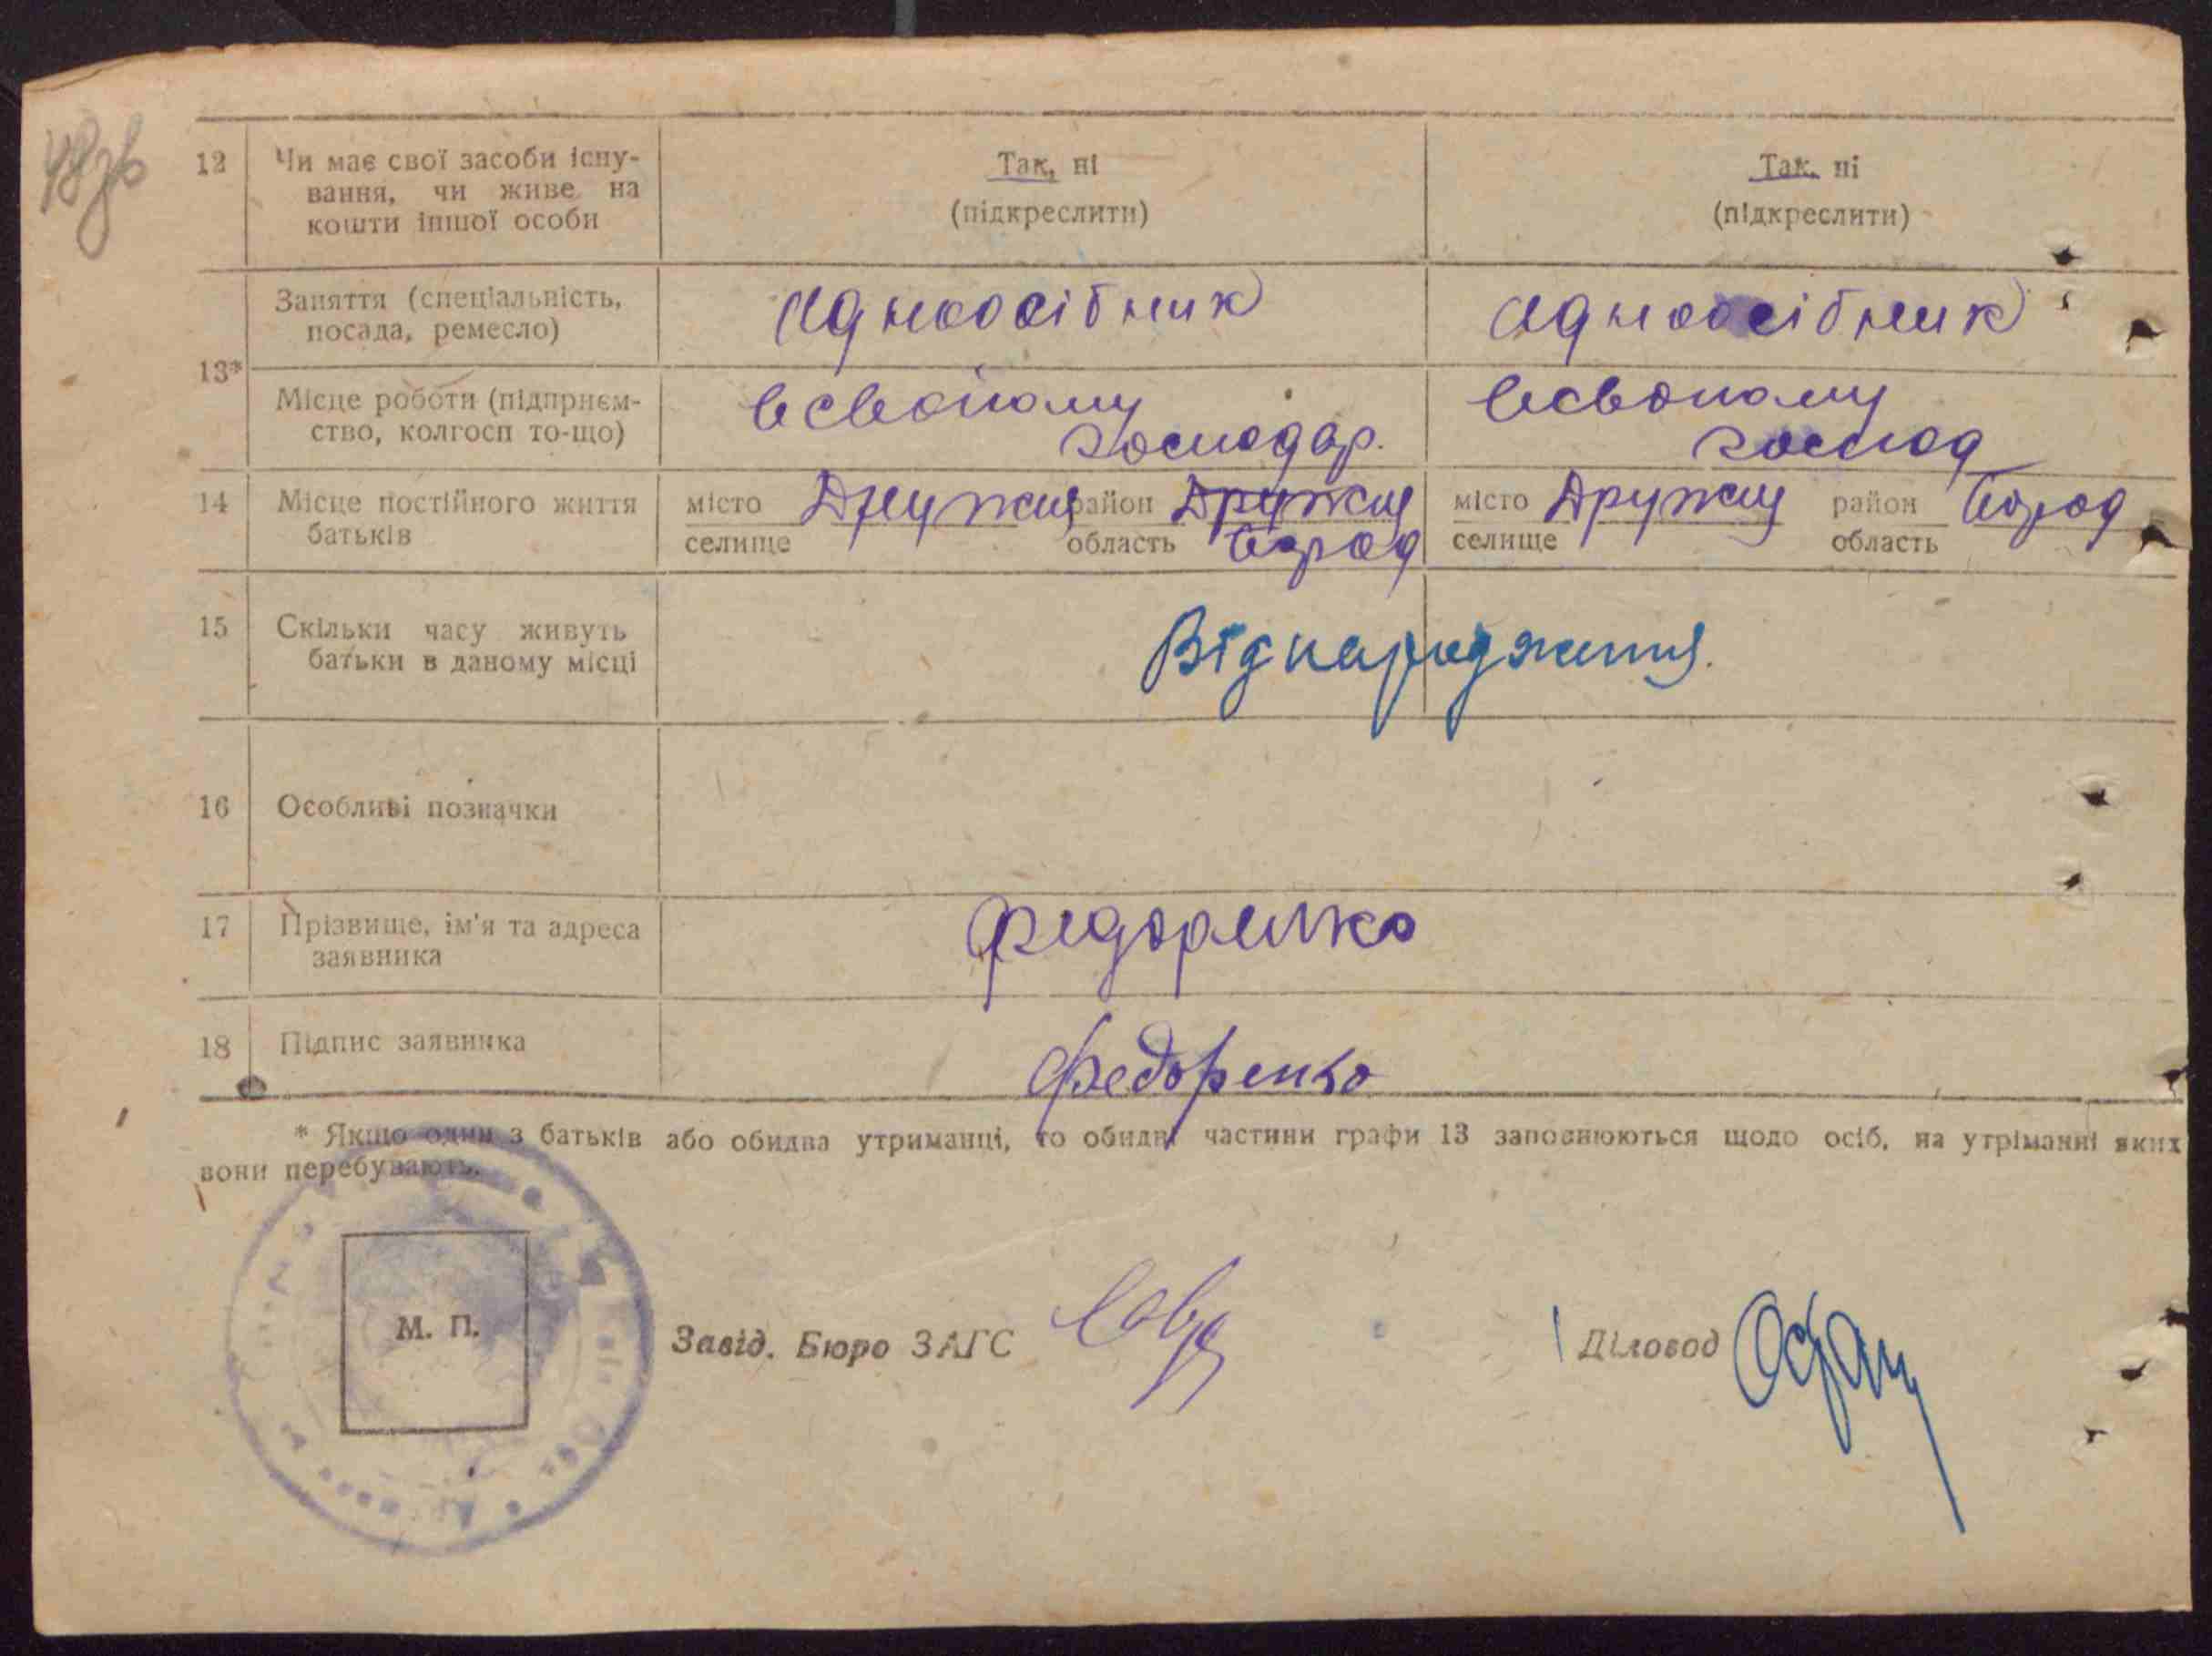 48зв
12 Чи має свої засоби існу- Так, ні Так, ні
вання, чи живе на (підкреслити) (підкреслити)
кошти іншої особи
Заняття (спеціальність, одноосібник одноосібник
посада, ремесло)
13*
Місце роботи (підприєм- всвойому всвойому
ство, колгосп то-що) господар. господ
14 Місце постійного життя місто Дружня район Дружня місто Дружня район Бород
батьків селище область Бород селище область
15 Скільки часу живуть Віднародження.
батьки в даному місці
16 Особливі позначки
17 Прізвище, ім'я та адреса Федоренко
заявника
18 Підпис заявника Федоренко
* Якщо один з батьків або обидва утриманці, то обидві частини графи 13 заповнюються щодо осіб, на утріманні яких
вони перебувають.
М. П.
Завід. Бюро ЗАГС Діловод